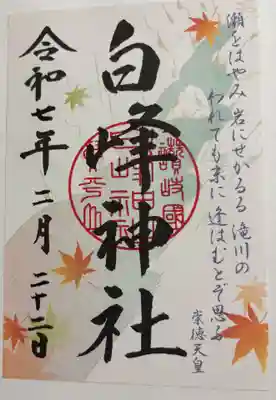 瀬をはやみ 岩にせかるる 滝川の
われても末に 逢はむとぞ思ふ
崇徳天皇
白峰神社
令和七年 二月 二十二日